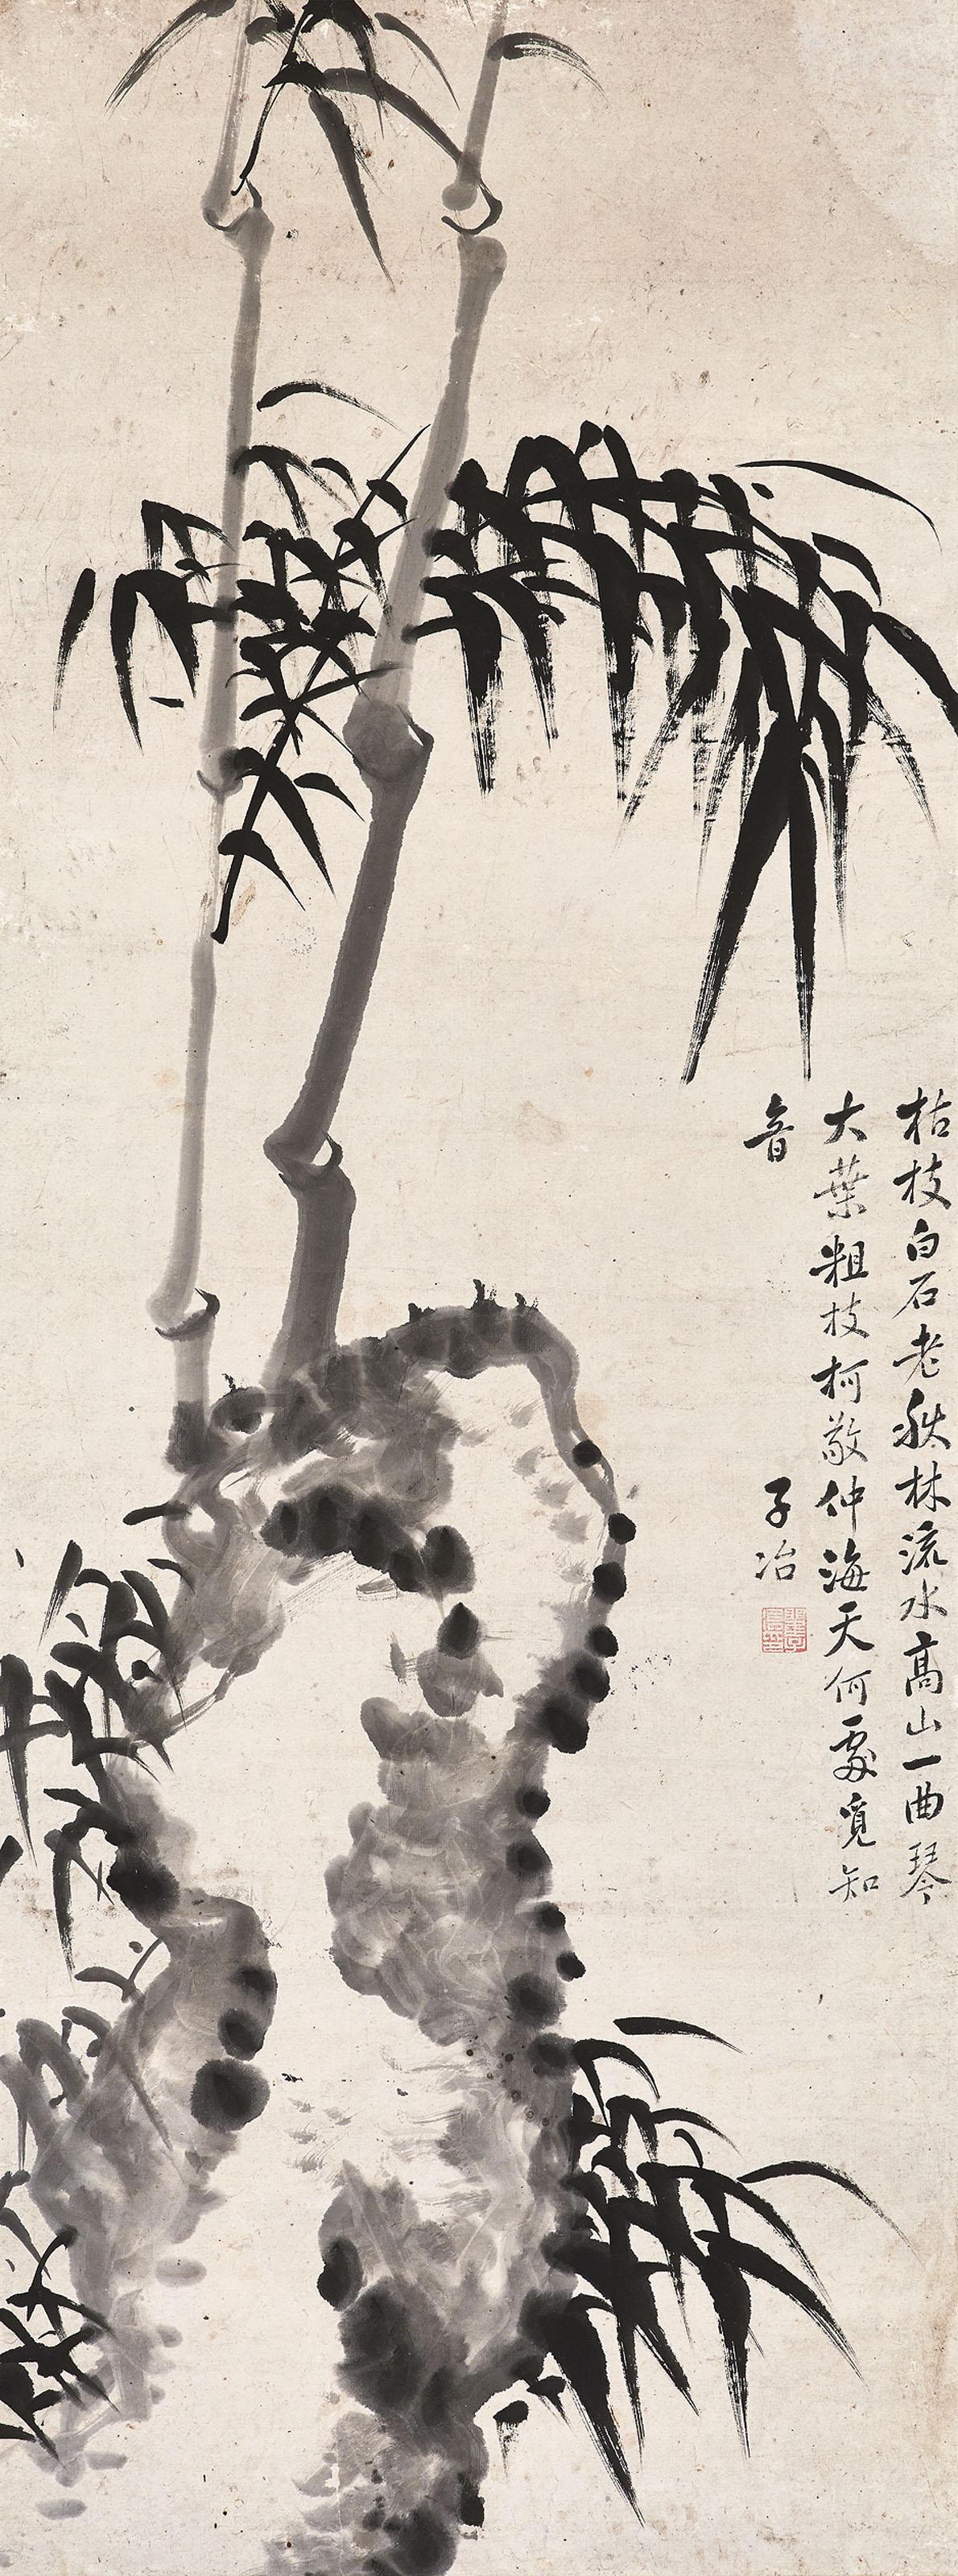 枯枝白石老秋林流水高山一曲琴
大葉粗枝柯敬仲海天何處覓知
音
子冶